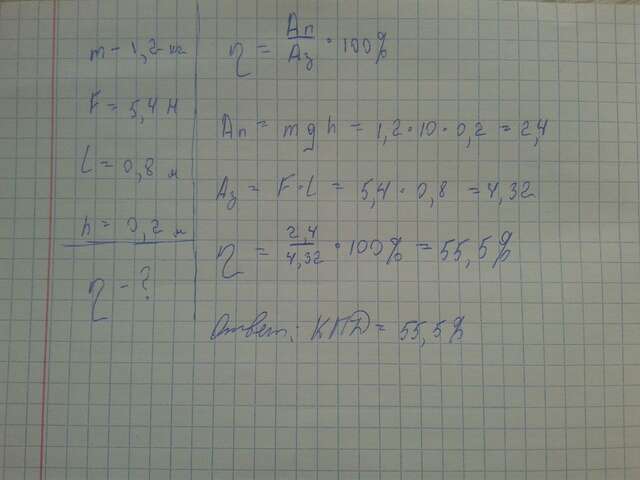 m - 1,2 кг
F = 5,4 Н
L = 0,8 м
h = 0,2 м
η - ?
η = Ап/Аз · 100%
Ап = mgh = 1,2 · 10 · 0,2 = 2,4
Аз = F · L = 5,4 · 0,8 = 4,32
η = 2,4/4,32 · 100% = 55,5%
Ответ: КПД = 55,5%